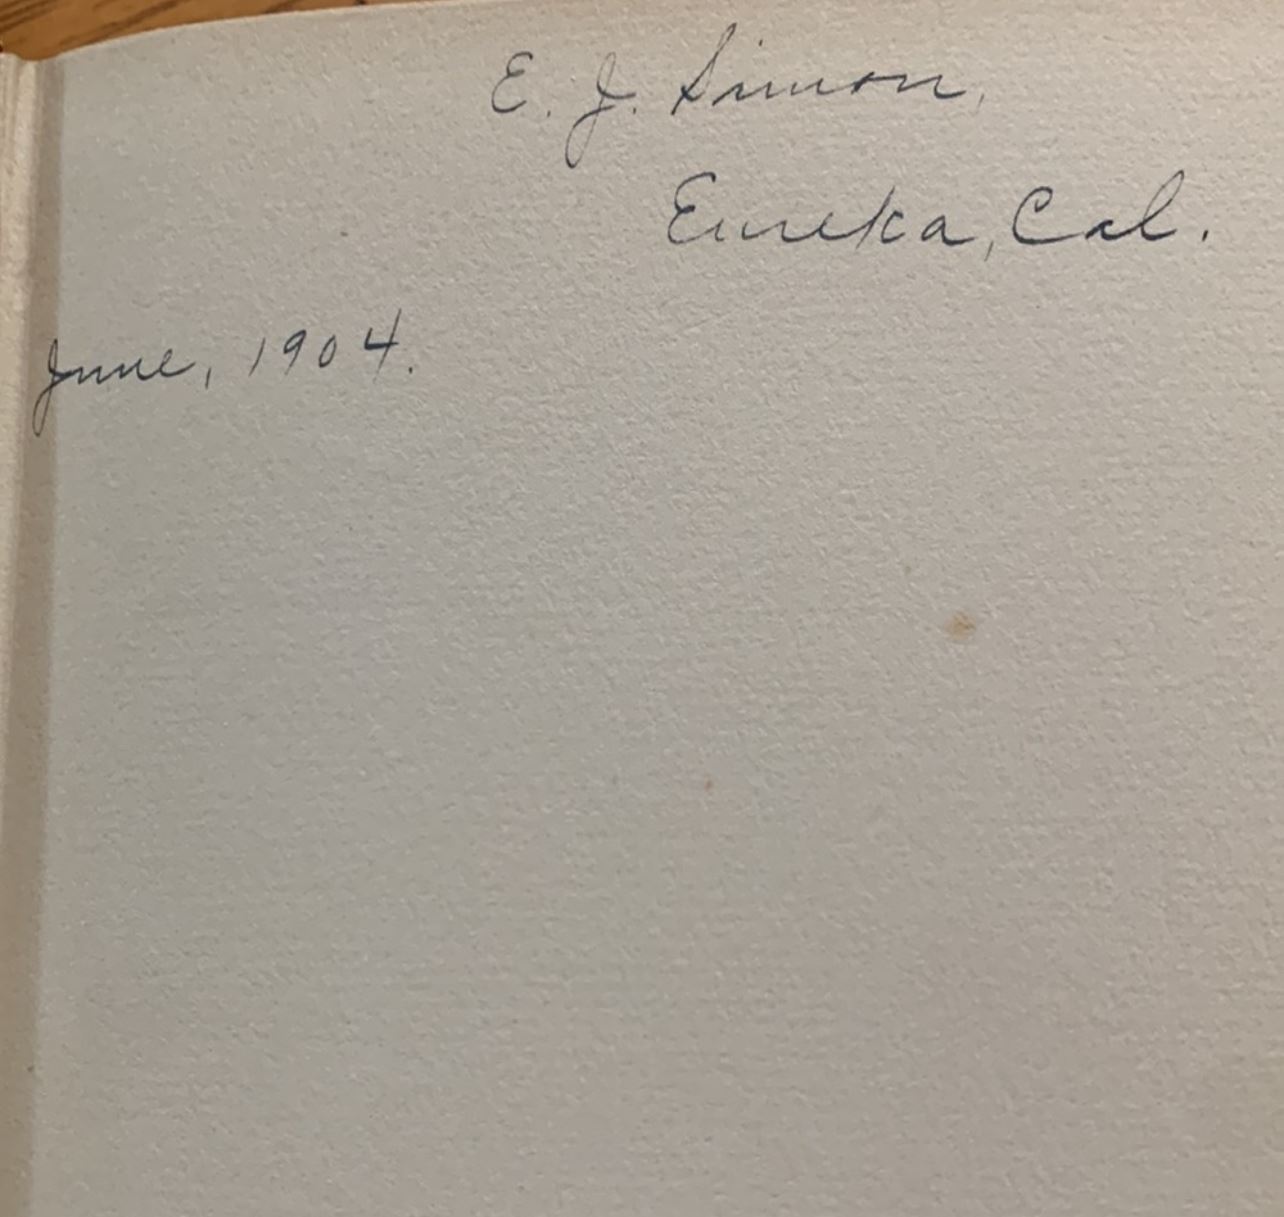 E. J. Simon,
Eureka, Cal.
June, 1904.